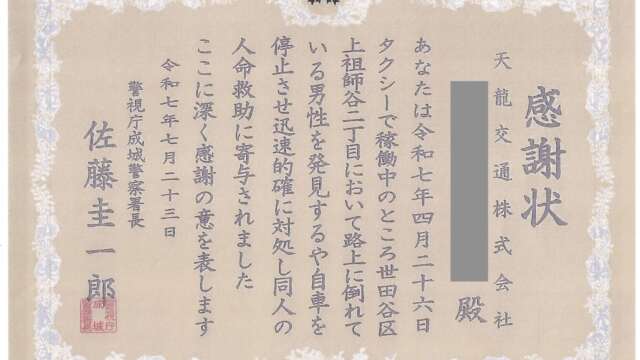 感謝状
天龍交通株式会社
殿
あなたは令和七年四月二十六日
タクシーで稼働中のところ世田谷区
上祖師谷二丁目において路上に倒れて
いる男性を発見するや自車を
停止させ迅速的確に対処し同人の
人命救助に寄与されました
ここに深く感謝の意を表します
令和七年七月二十三日
警視庁成城警察署長
佐藤圭一郎